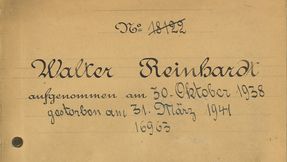 No 18122
Walter Reinhardt
aufgenommen am 30. Oktober 1938
gestorben am 31. März 1941
16963